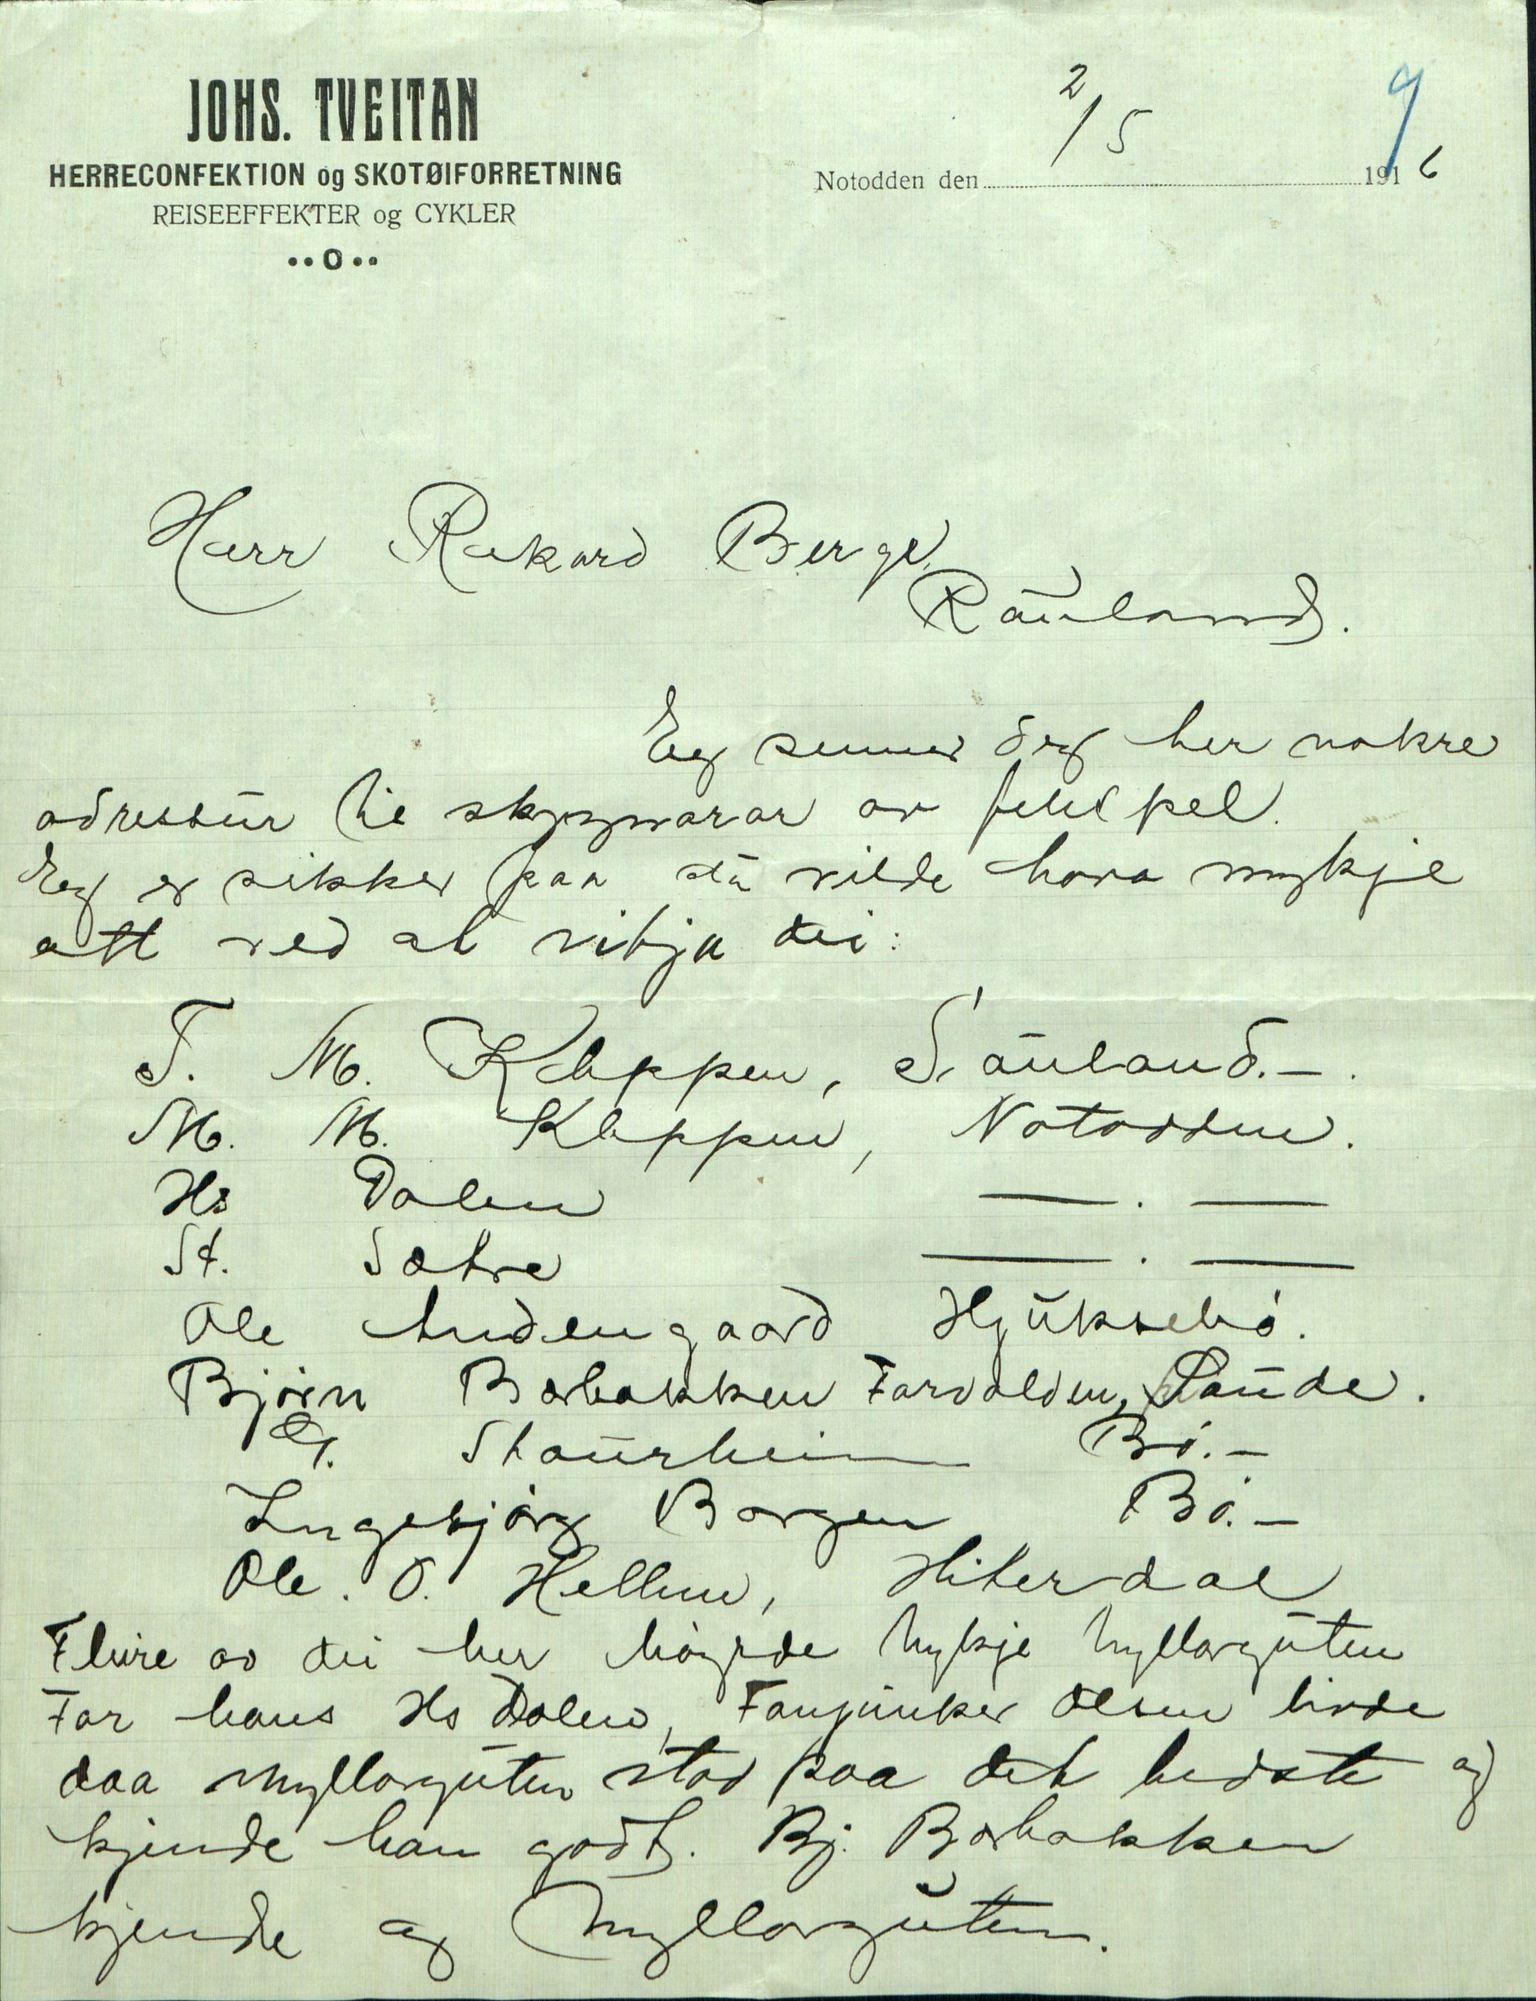 JOHS. TVEITAN
HERRECONFEKTION og SKOTØIFORRETNING
REISEEFFEKTER og CYKLER
Notodden den 2/5 1916
9
Herr Rikard Berge,
Rauland.
Eg sender deg her nokre
adressur til skyggnarar av feklspel.
Eg er sikker paa du vilde hava mykje
att ved at vitja dei:
T. M. Kleppen, Sauland. —.
M. M. Kleppen, Notodden.
Hs Dalen — . —
St. Sætre — . —
Ole Lindengaard Hjuksebø.
Bjørn Bærbakken Farvolden, Saude.
G. Staurheim Bø. —
Ingebjørg Borgen Bø. —
Ole. O. Hellem, Hiterdal
Fleire av dei her høyrde mykje Myllarguten
Far hans Hs Dalen, Fanjunker Olsen livde
daa Myllarguten stod paa det bedste og
kjende han godt. Bj. Bærbakken
kjende og Myllarguten.